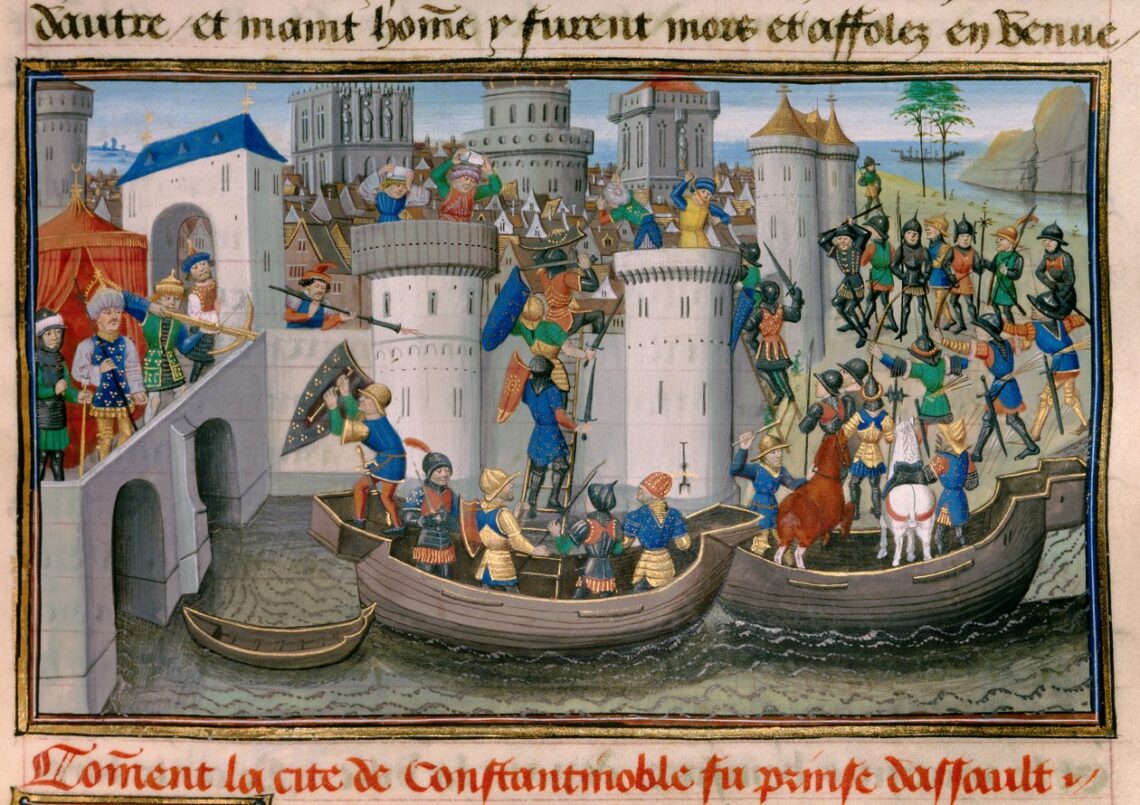 dautre / et maint hom̄e y furent mors et affolez en venue /
Com̄ent la cite de Constantinoble fu prinse dassault